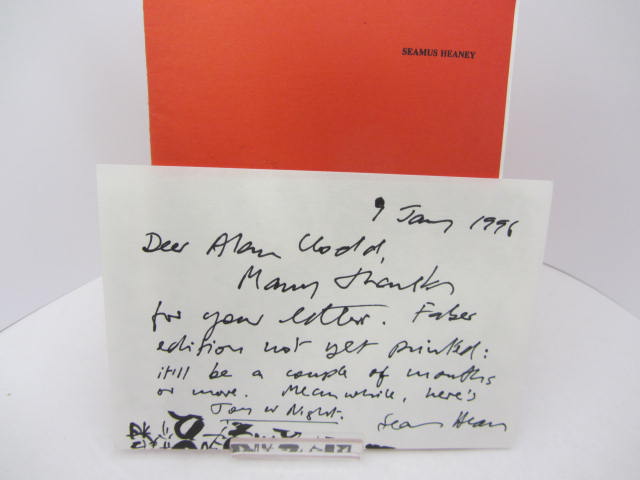 SEAMUS HEANEY
9 Jany 1996
Dear Alan Clodd,
Many thanks
for your letter. Faber
edition not yet printed:
it'll be a couple of months
or more. Meanwhile, here's
Joy or Night.
Seamus Heaney